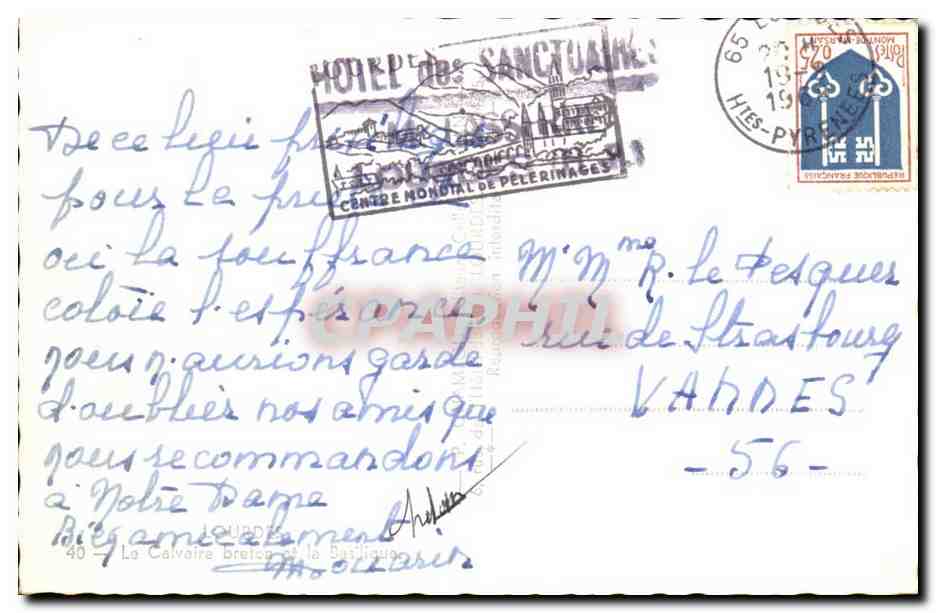 LOURDES
HOTEL des SANCTUAIRES
CENTRE MONDIAL DE PÈLERINAGES
65 LOURDES
19-6
HTES-PYRÉNÉES
Postes 0,25
MONT-DE-MARSAN
REPUBLIQUE FRANÇAISE
De ce lieu
pour la
où la souffrance
cotoie l'espérance,
nous n'aurions garde
d'oublier nos amis que
nous recommandons
à Notre Dame
Bien amicalement
Mr Mme R. Le Pesquer
rue de Strasbourg
VANNES
- 56 -
LOURDES
40 - Le Calvaire breton et la Basilique
Reproduction interdite
CPAPHIL